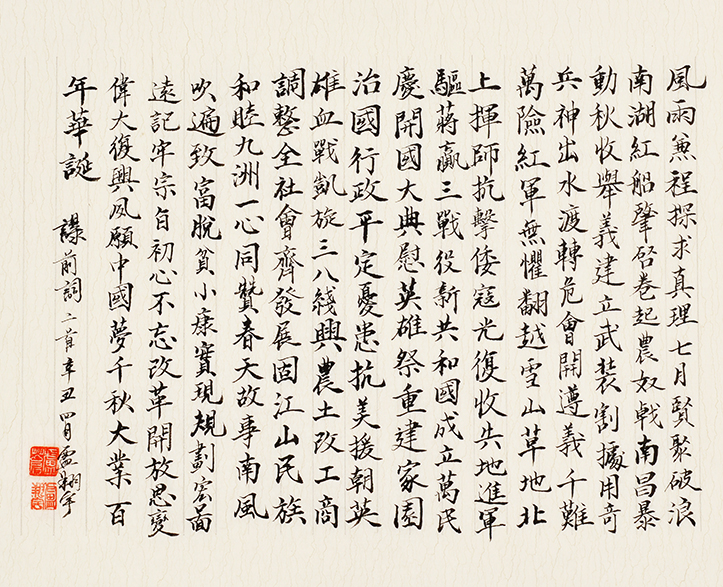 風雨兼程探求真理七月賢聚破浪
南湖紅船肇啓卷起農奴戟南昌暴
動秋收舉義建立武裝割據用奇
兵神出水渡轉危會開遵義千難
萬險紅軍無懼翻越雪山草地北
上揮師抗擊倭寇光復收失地進軍
驅蔣贏三戰役新共和國成立萬民
慶開國大典慰英雄祭重建家園
治國行政平定憂患抗美援朝英
雄血戰凱旋三八綫興農土改工商
調整全社會齊發展固江山民族
和睦九洲一心同贊春天故事南風
吹遍致富脫貧小康實現規劃宏圖
遠記牢宗旨初心不忘改革開放思變
偉大復興夙願中國夢千秋大業百
年華誕
謀前詞二首辛丑四月孟